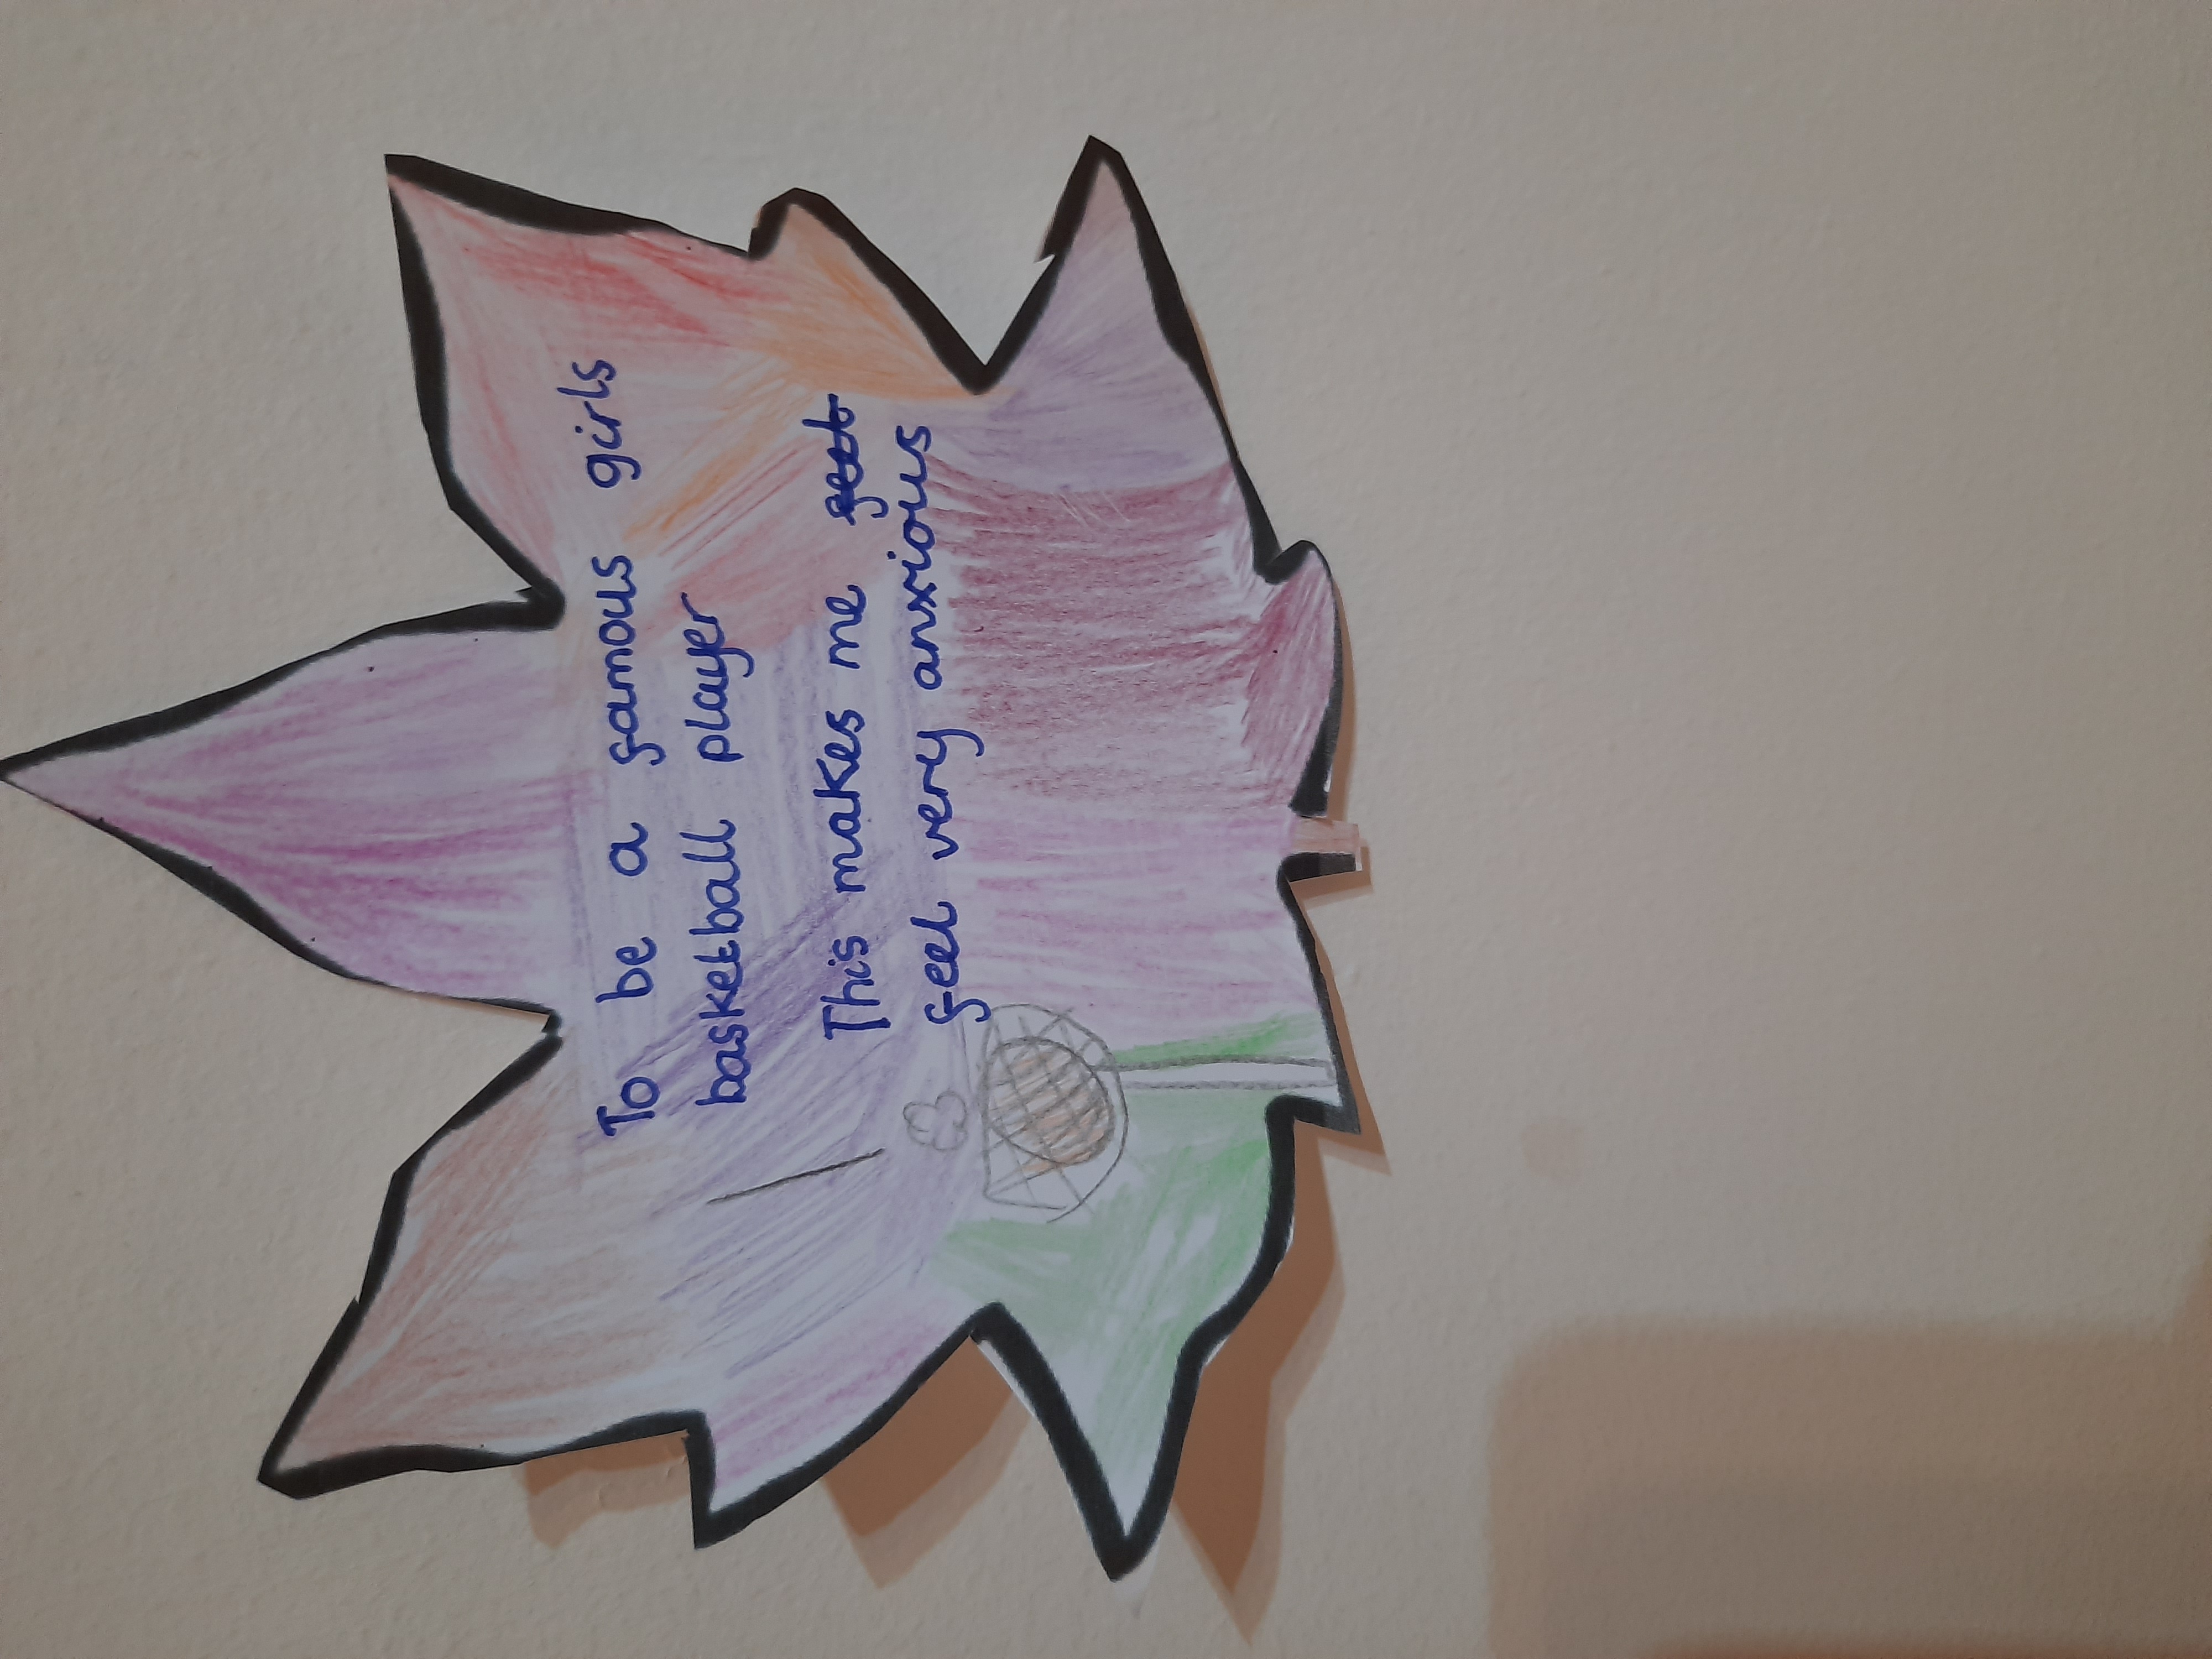 To be a famous girls
basketball player
This makes me
feel very anxious